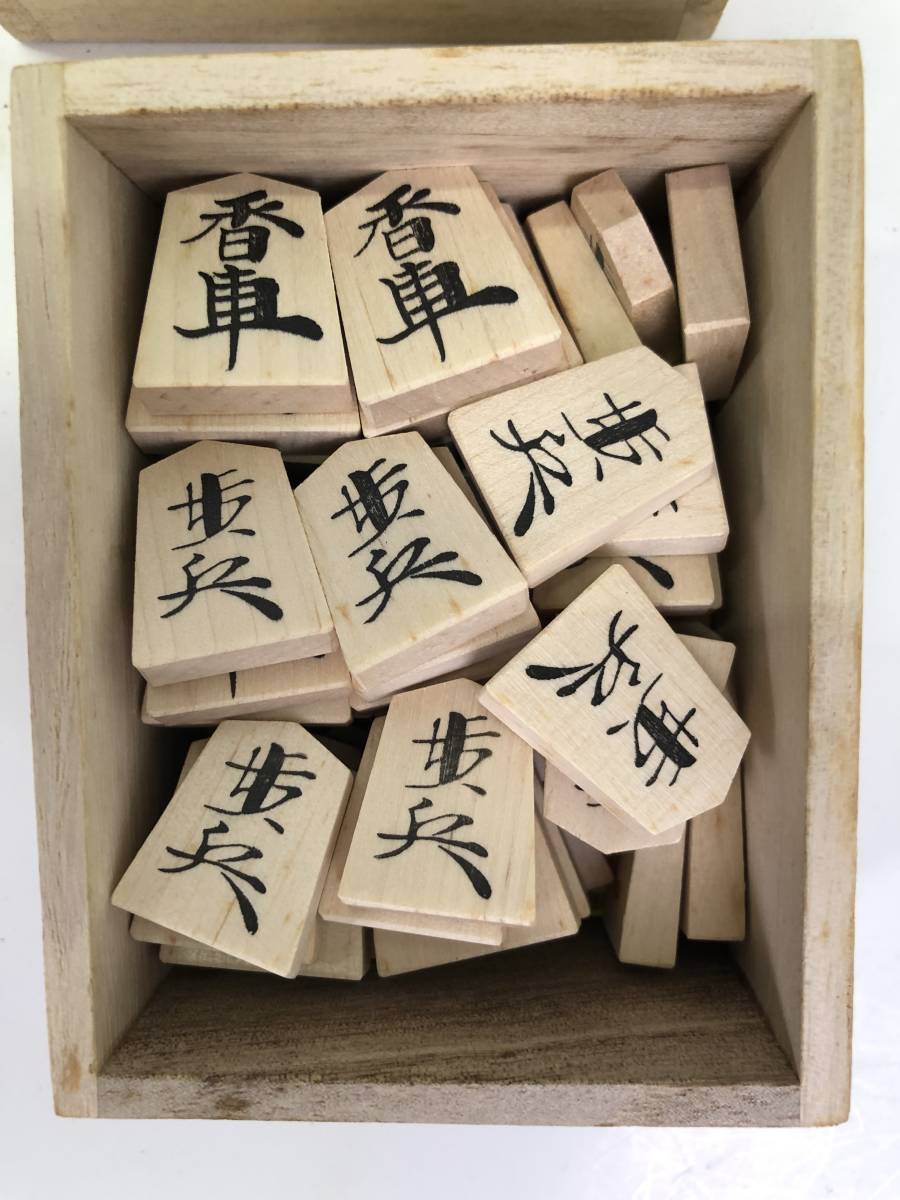 香車
香車
歩兵
歩兵
歩兵
歩兵
歩兵
歩兵